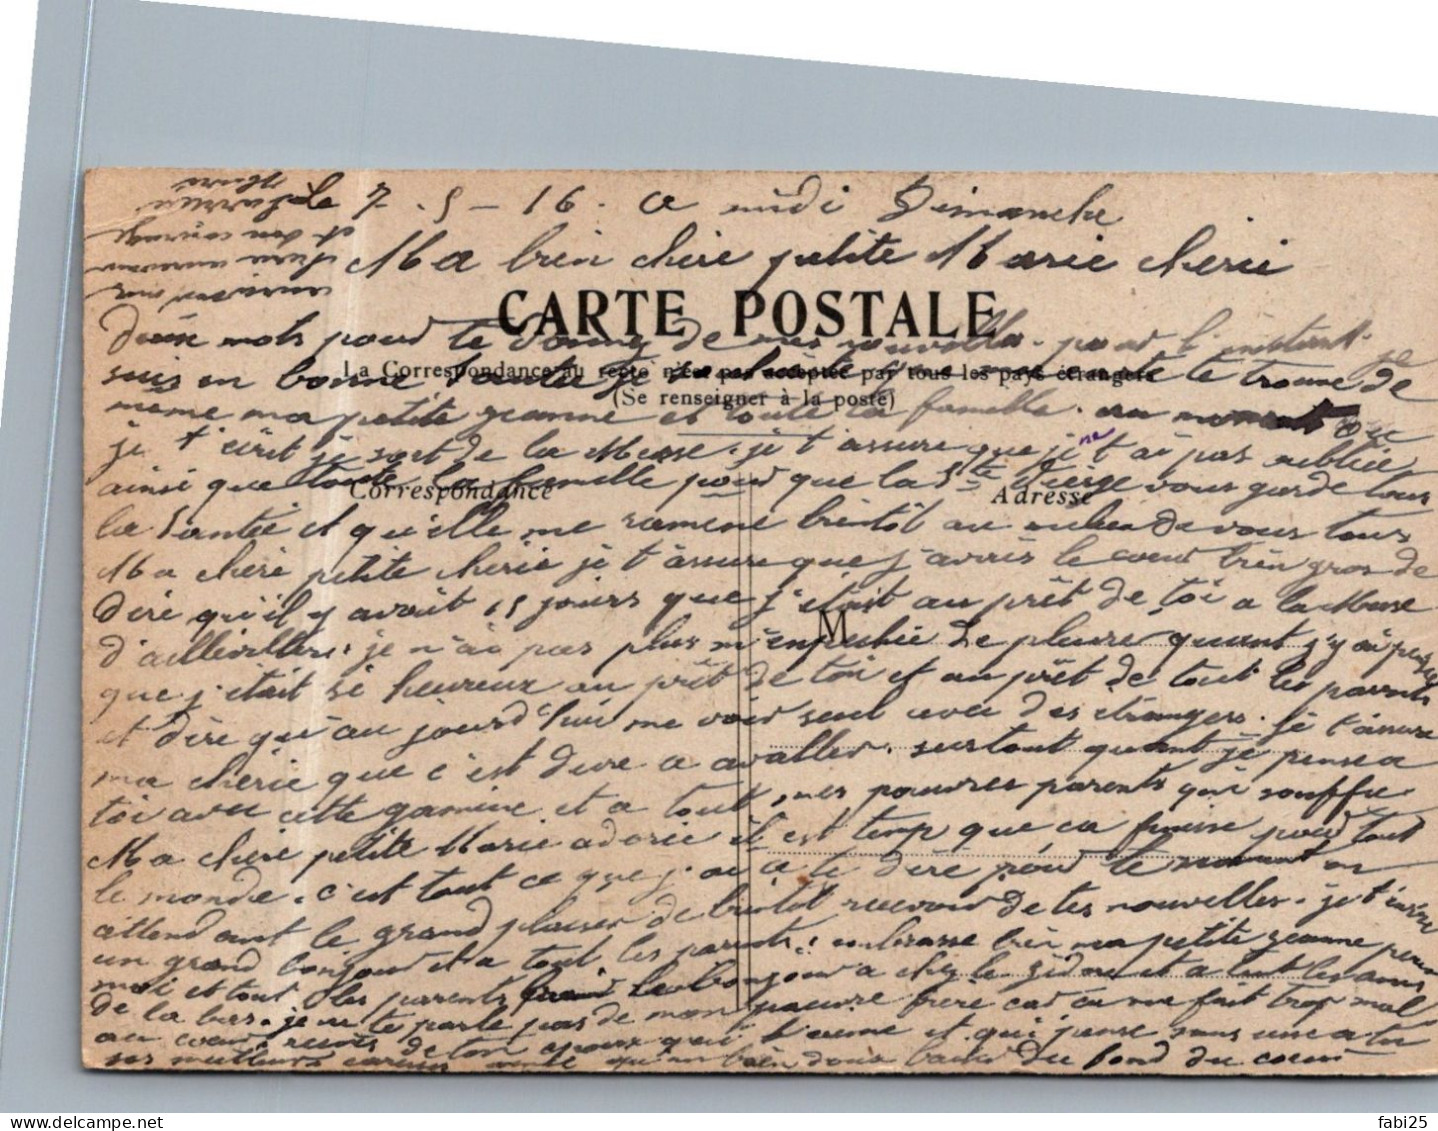 Le 7-5-16. a midi Dimanche
Ma bien chère petite Marie cherie
CARTE POSTALE
deux mots pour te donny de mes nouvelles. pour l'instant je
La Correspondance au recto n'est pas acceptée par tous les pays étrangers
suis en bonne santée je que la carte te trouve de
(Se renseigner à la poste)
même ma petite jeanne et toute la famille. au moment que
je t'écrit je sort de la Messe. je t'assure que je ne t'ai pas oubliée
ainsi que toute la famille pour que la Ste Vierge vous garde tous
Correspondance
Adresse
la Santée et qu'elle me ramene bientôt au milieu de vous tous
Ma chère petite cherie je t'assure que j'avais le cœur bien gros de
dire qu'il y avait 15 jours que j'était au prêt de toi a la Messe
M
d'aillevillers. je n'ai pas plus m'enpechée de pleure quant j'y ai pensé
que j'était si heureux au prêt de toi et au prêt de tout les parents
et dire qu'au jourd'hui me voir seul avec des étrangers. je t'assure
ma cherie que c'est dure a avaller. surtout quant je pense a
toi avec cette gamine et a tout mes pauvres parents qui souffre
Ma chère petite Marie adorée il est temp que ca finisse pour tout
le monde. c'est tout ce que j'ai a te dire pour le moment en
attendant le grand plaisir de bientôt recevoir de tes nouvelles. je t'
un grand bonjour et a tout les parents. embrasse bien ma petite jeanne pour
moi et tout les parents le bonjour a chez le et a tout les amis
de la bas. je ne te parle pas de mon pauvre frère car ca me fait trop mal
au cœur reçois de ton epoux qui t'aime et qui pense sans
ses meilleurs caresses qu'un bien doux baiser du fond du coeur
fabi25